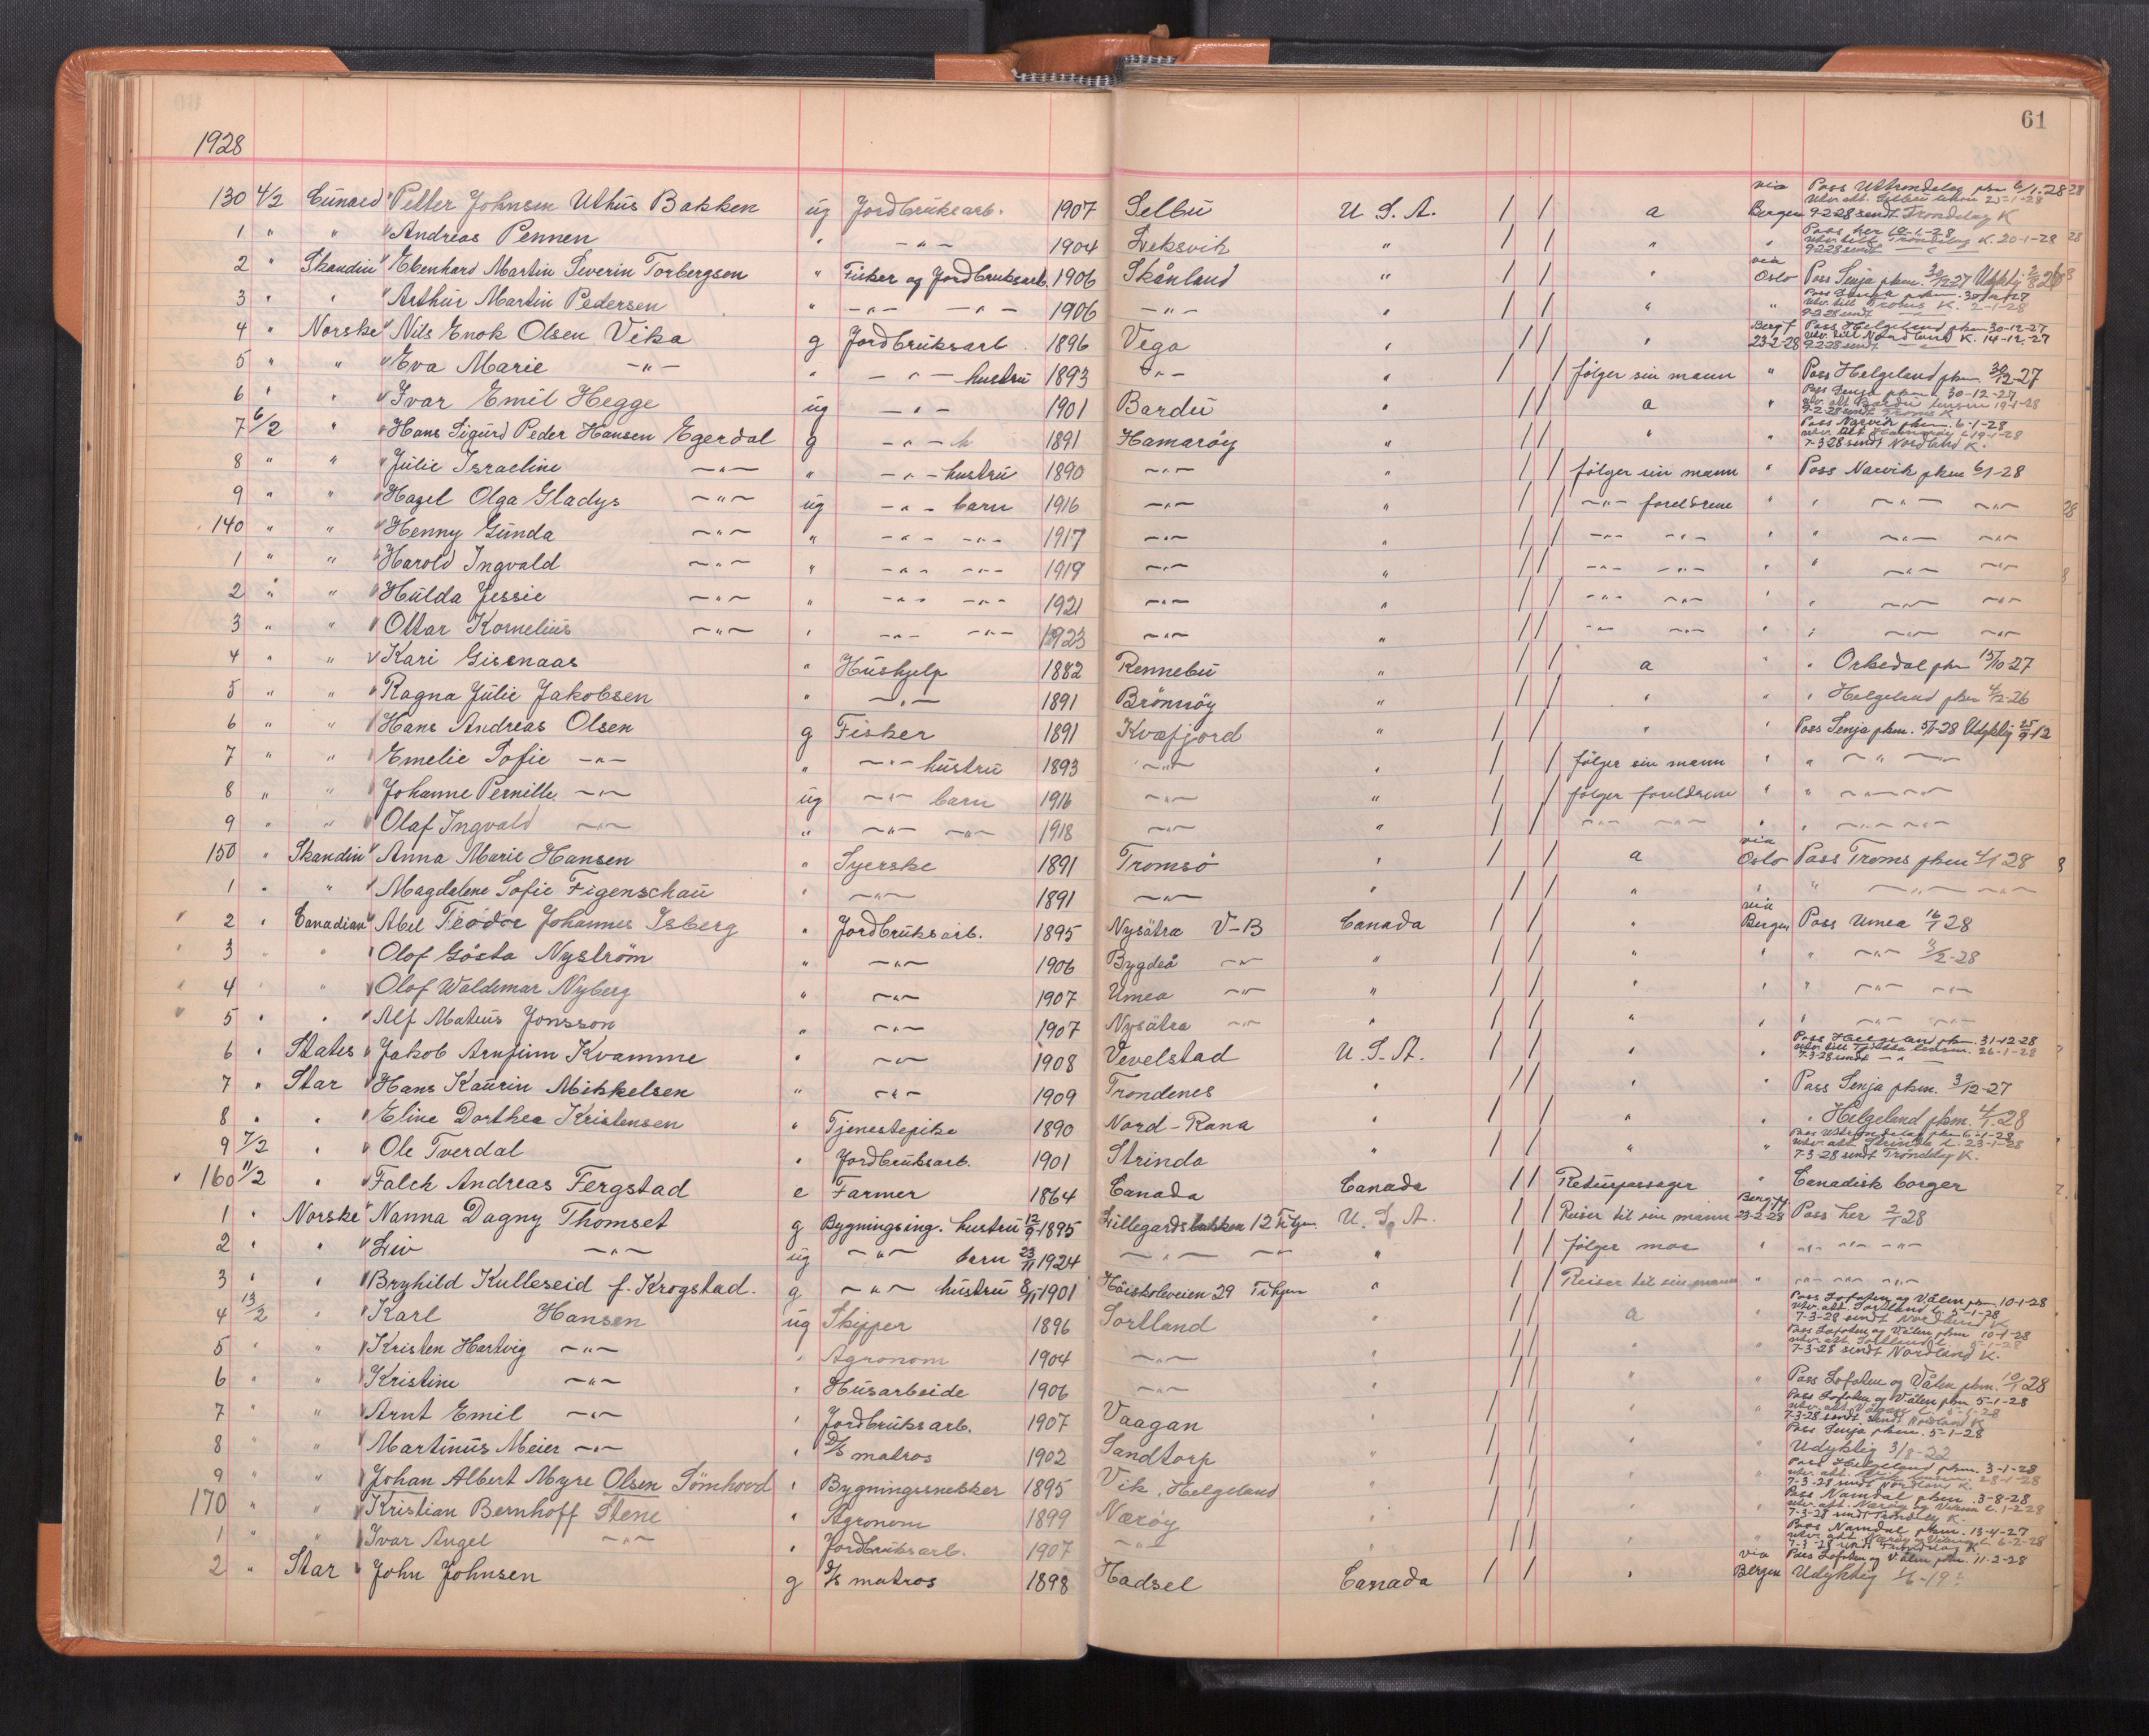 61
1928
130 4/2 Cunard Petter Johnsen Uthus Bakken ug Jordbruksarb. 1907 Selbu U.S.A. / / a via Bergen Pass Uttrondelag pkm 6/1-28 9-2-28 sendt Trondelag K
1 " " Andreas Pennen " -"- 1904 Leksvik " / / " " Pass her 10-1-28 Trondelag K. 20-1-28 9-2-28 sendt
2 " Skandin Ebenhard Martin Severin Torbergsen " Fisker og Jordbruksarb. 1906 Skånland " / / " via Oslo Pass Senja pkm. 30/12 27
3 " " Arthur Martin Pedersen " -"- -"- 1906 -"- " / / " " 9-2-28 sendt
4 " Norske Nils Enok Olsen Vika g Jordbruksarb. 1896 Vega " / / " Bergf 23-2-28 Pass Helgeland pkm 30-12-27 utv. till Nordland K. 14-12-27 9-2-28 sendt
5 " " Eva Marie -"- " -"- hustru 1893 -"- " / / følger sin mann " Pass Helgeland pkm 30/12-27
6 " " Ivar Emil Hegge ug -"- 1901 Bardu " / / a " Pass Senja pkm 30-12-27 utv. att Bardu 19-1-28 9-2-28 sendt Troms K
7 6/2 " Hans Sigurd Peder Hansen Egerdal g -"- 1891 Hamarøy " / / " " Pass Narvik pkm. 6-1-28 7-3-28 sendt Nordland K.
8 " " Julie Israeline -"- " -"- hustru 1890 -"- " / / følger sin mann " Pass Narvik pkm 6/1-28
9 " " Hazel Olga Gladys -"- ug -"- barn 1916 -"- " / / -"- foreldrene " " -"- -"-
140 " " Henny Gunda -"- " -"- -"- 1917 -"- " / / -"- -"- " " -"- -"-
1 " " Harold Ingvald -"- " -"- -"- 1919 -"- " / / -"- -"- " " -"- -"-
2 " " Hulda Jessie -"- " -"- -"- 1921 -"- " / / -"- -"- " " -"- -"-
3 " " Ottar Kornelius -"- " -"- -"- 1923 -"- " / / -"- -"- " " -"- -"-
4 " " Kari Gisenaas " Hushjelp 1882 Rennebu " / / a " " Orkedal pkm 15/10 27
5 " " Ragna Julie Jakobsen " -"- 1891 Brönnöy " / / " " " Helgeland pkm 4/2-26
6 " " Hans Andreas Olsen g Fisker 1891 Kvæfjord " / / " " Pass Senja pkm. 5/1-28 Udyktig
7 " " Emelie Sofie -"- " -"- hustru 1893 -"- " / / følger sin mann " " -"- -"-
8 " " Johanne Pernille -"- ug -"- barn 1916 -"- " / / følger foreldrene " " -"- -"-
9 " " Olaf Ingvald -"- " -"- -"- 1918 -"- " / / -"- -"- " " -"- -"-
150 " Skandin Anna Marie Hansen " Syerske 1891 Tromsö " / / a via Oslo Pass Troms pkm 4/1 28
1 " " Magdelene Sofie Figenschau " -"- 1891 -"- " / / " " " -"- -"-
2 " Canadian Abel Teodor Johannes Isberg " Jordbruksarb. 1895 Nysätra V-B Canada / / " via Bergen Pass Umea 16/1 28
3 " " Olof Gösta Nyström " -"- 1906 Bygdeå -"- " / / " " " -"- 3/2-28
4 " " Olof Waldemar Nyberg " -"- 1907 Umea -"- " / / " " " -"- -"-
5 " " Alf Mateus Jonsson " -"- 1907 Nysätra -"- " / / " " " -"- -"-
6 " States Jakob Arnfinn Kvamme " -"- 1908 Vevelstad U.S.A. / / " " Pass Helgeland pkm. 31-12-28 26-1-28 7-3-28 sendt -"-
7 " Star Hans Kaurin Mikkelsen " -"- 1909 Trondenes " / / " " Pass Senja pkm. 3/12-27
8 " " Eline Dorthea Kristensen " Tjenestepike 1890 Nord-Rana " / / " " " Helgeland pkm. 4/1-28
9 7/2 " Ole Tverdal " Jordbruksarb. 1901 Strinda " / / " " Pass Uttrondelag pkm 6-1-28 utv. att. Strinda l. 23-1-28 7-3-28 sendt Tröndelag K.
160 11/2 " Falch Andreas Fergstad e Farmer 1864 Canada Canada / / Returpassager " Canadisk borger
1 " Norske Nanna Dagny Thomset g Bygningsing. hustru 12/9 1895 Lillegårdsbakken 12 Tr.hjem U.S.A. / / Reiser til sin mann Bergf 23-2-28 Pass her 2/1 28
2 " " Liv -"- ug -"- barn 23/11 1924 -"- -"- " / / følger mor " -"- -"- -"-
3 " " Bryhild Kulleseid f. Krogstad. g -"- hustru 8/11 1901 Höiskoleveien 29 " / / Reiser til sin mann " -"- -"- -"-
4 13/2 " Karl Hansen ug Skipper 1896 Sortland " / / a " Pass Lofoten og Vålen pkm. 10-1-28 utv. att. Sortland l. 5-1-28 7-3-28 sendt Nordland K
5 " " Kristen Hartvig -"- " Agronom 1904 -"- " / / " " Pass Lofoten og Vålen pkm 10-1-28 7-3-28 sendt Nordland K.
6 " " Kristine -"- " Husarbeide 1906 -"- " / / " " Pass Lofoten og Vålen pkm. 10/1 28
7 " " Arnt Emil -"- " Jordbruksarb. 1907 Vaagan " / / " " Pass Lofoten og Vålen pkm 5-1-28 7-3-28 sendt Nordland K
8 " " Martinus Meier -"- " D/S matros 1902 Sandtorp " / / " " Pass Senja pkm. 5-1-28 Udyktig 3/8-22
9 " " Johan Albert Myre Olsen Sömhovd " Bygningssnekker 1895 Vik, Helgeland " / / " " Pass Helgeland pkm. 3-1-28 7-3-28 sendt Nordland K.
170 " " Kristian Bernhoff Stene " Agronom 1899 Nærøy " / / " " Pass Namdal pkm. 3-8-28 7-3-28 sendt Trondelag K.
1 " " Ivar Angel -"- " Jordbruksarb. 1907 -"- " / / " " Pass Namdal pkm. 13-4-27 6-2-28
2 " Star John Johnsen g D/S matros 1898 Hadsel Canada / / " via Bergen Pass Lofoten og Vålen pkm. 11-2-28 Udyktig